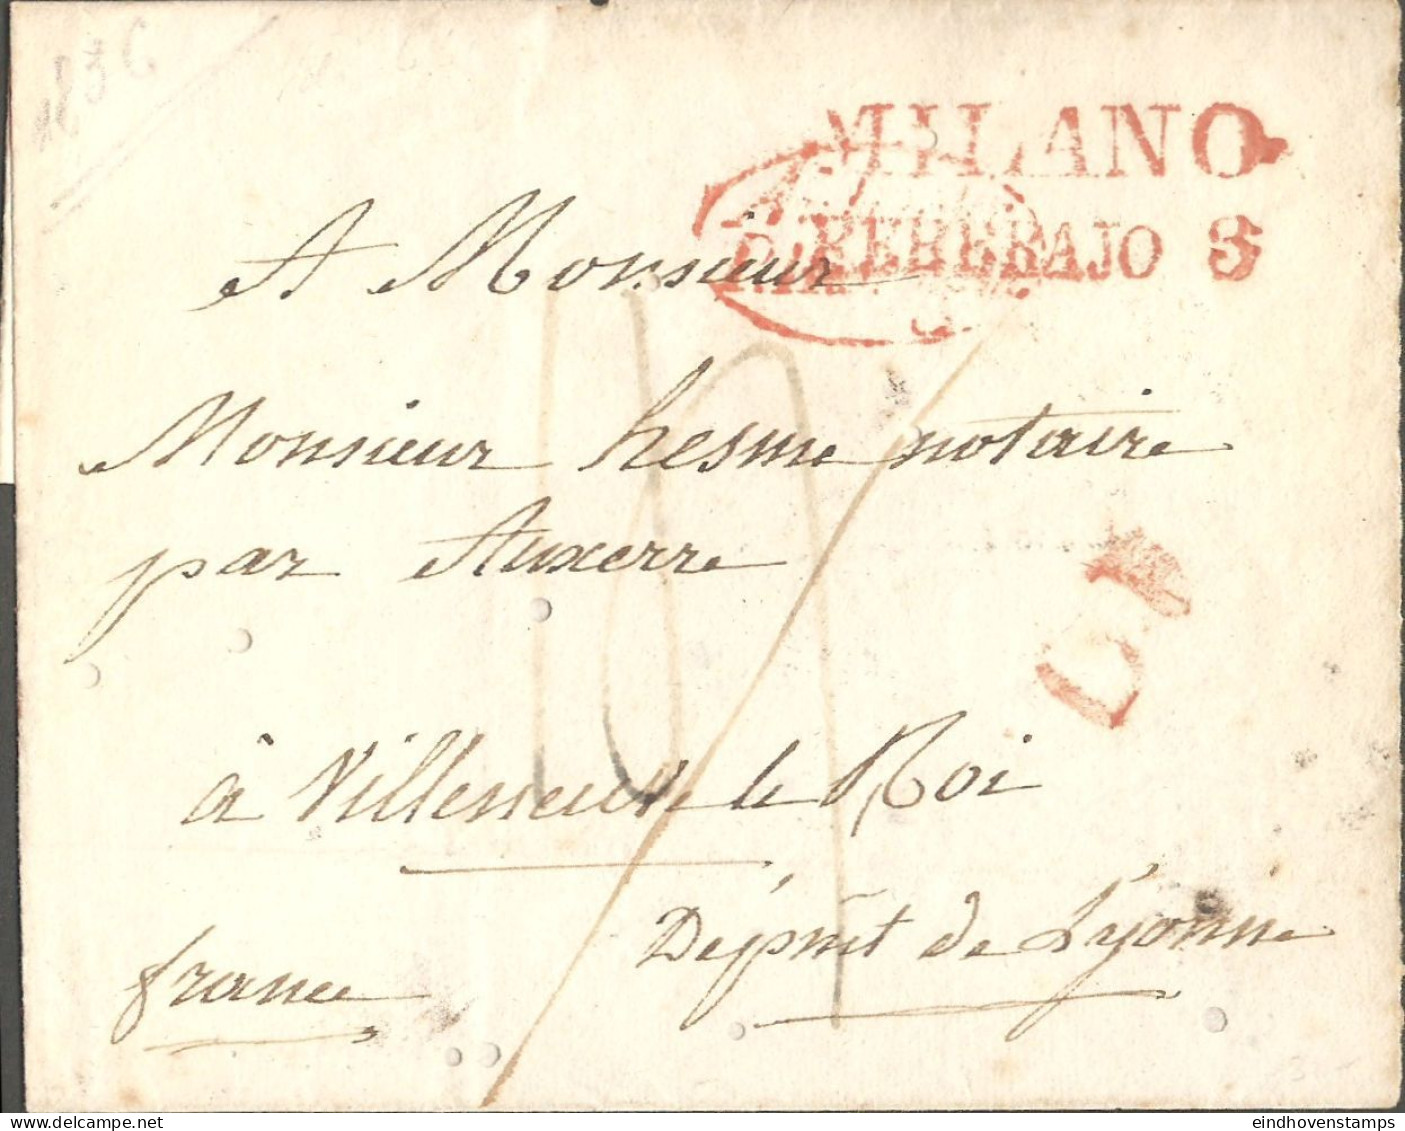 MILANO
FEBBRAJO
A Monsieur
Monsieur hesme notaire
par Auxerre
à Villeneuve le Roi
Dépmt de L'yonne
france
eindhovenstamps